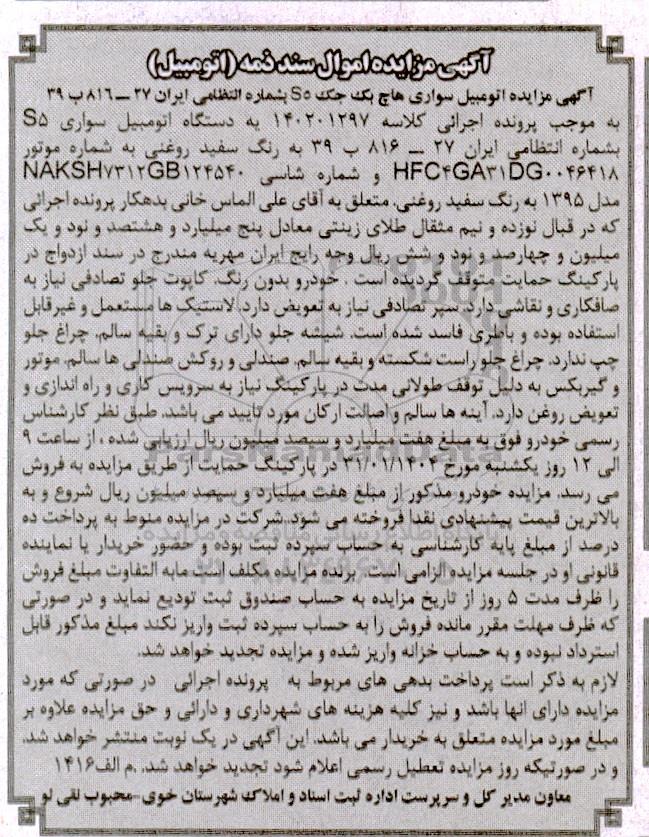 آگهی مزایده اموال سند ذمه (اتومبیل)
آگهی مزایده اتومبیل سواری هاچ بک جک S۵ بشماره انتظامی ایران ۲۷ ــ ۸۱۶ ب ۳۹
به موجب پرونده اجرائی کلاسه ۱۴۰۲۰۱۲۹۷ یه دستگاه اتومبیل سواری S۵
بشماره انتظامی ایران ۲۷ ــ ۸۱۶ ب ۳۹ به رنگ سفید روغنی به شماره موتور
HFC۴GA۳۱DG۰۰۴۶۴۱۸ و شماره شاسی NAKSH۷۳۱۲GB۱۲۴۵۴۰
مدل ۱۳۹۵ به رنگ سفید روغنی، متعلق به آقای علی الماس خانی بدهکار پرونده اجرائی
که در قبال نوزده و نیم مثقال طلای زینتی معادل پنج میلیارد و هشتصد و نود و یک
میلیون و چهارصد و نود و شش ریال وجه رایج ایران مهریه مندرج در سند ازدواج در
پارکینگ حمایت متوقف گردیده است . خودرو بدون رنگ، کاپوت جلو تصادفی نیاز به
صافکاری و نقاشی دارد. سپر تصادفی نیاز به تعویض دارد. لاستیک ها مستعمل و غیرقابل
استفاده بوده و باطری فاسد شده است. شیشه جلو دارای ترک و بقیه سالم. چراغ جلو
چپ ندارد. چراغ جلو راست شکسته و بقیه سالم. صندلی و روکش صندلی ها سالم. موتور
و گیربکس به دلیل توقف طولانی مدت در پارکینگ نیاز به سرویس کاری و راه اندازی و
تعویض روغن دارد. آینه ها سالم و اصالت ارکان مورد تایید می باشد. طبق نظر کارشناس
رسمی خودرو فوق به مبلغ هفت میلیارد و سیصد میلیون ریال ارزیابی شده ، از ساعت ۹
الی ۱۲ روز یکشنبه مورخ ۳۱/۰۱/۱۴۰۴ در پارکینگ حمایت از طریق مزایده به فروش
می رسد. مزایده خودرو مذکور از مبلغ هفت میلیارد و سیصد میلیون ریال شروع و به
بالاترین قیمت پیشنهادی نقدا فروخته می شود. شرکت در مزایده منوط به پرداخت ده
درصد از مبلغ پایه کارشناسی به حساب سپرده ثبت بوده و حضور خریدار یا نماینده
قانونی او در جلسه مزایده الزامی است. برنده مزایده مکلف است مابه التفاوت مبلغ فروش
را ظرف مدت ۵ روز از تاریخ مزایده به حساب صندوق ثبت تودیع نماید و در صورتی
که ظرف مهلت مقرر مانده فروش را به حساب سپرده ثبت واریز نکند مبلغ مذکور قابل
استرداد نبوده و به حساب خزانه واریز شده و مزایده تجدید خواهد شد.
لازم به ذکر است پرداخت بدهی های مربوط به پرونده اجرائی در صورتی که مورد
مزایده دارای انها باشد و نیز کلیه هزینه های شهرداری و دارائی و حق مزایده علاوه بر
مبلغ مورد مزایده متعلق به خریدار می باشد. این آگهی در یک نوبت منتشر خواهد شد.
و در صورتیکه روز مزایده تعطیل رسمی اعلام شود تجدید خواهد شد. .م الف۱۴۱۶
معاون مدیر کل و سرپرست اداره ثبت اسناد و املاک شهرستان خوی-محبوب نقی لو